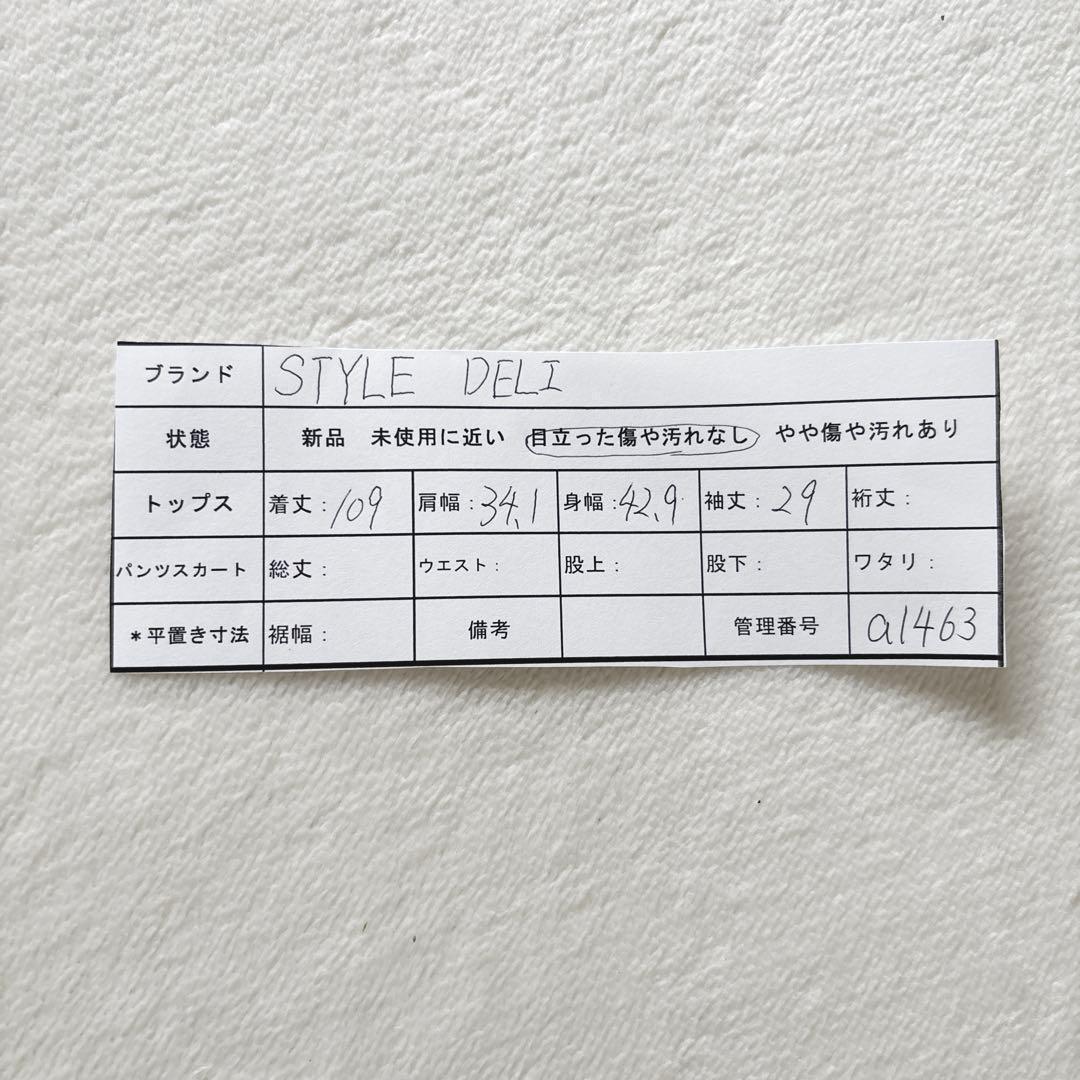 ブランド STYLE DELI
状態 新品 未使用に近い 目立った傷や汚れなし やや傷や汚れあり
トップス 着丈：109 肩幅：34.1 身幅：42.9 袖丈：29 裄丈：
パンツスカート 総丈： ウエスト： 股上： 股下： ワタリ：
＊平置き寸法 裾幅： 備考 管理番号 a1463